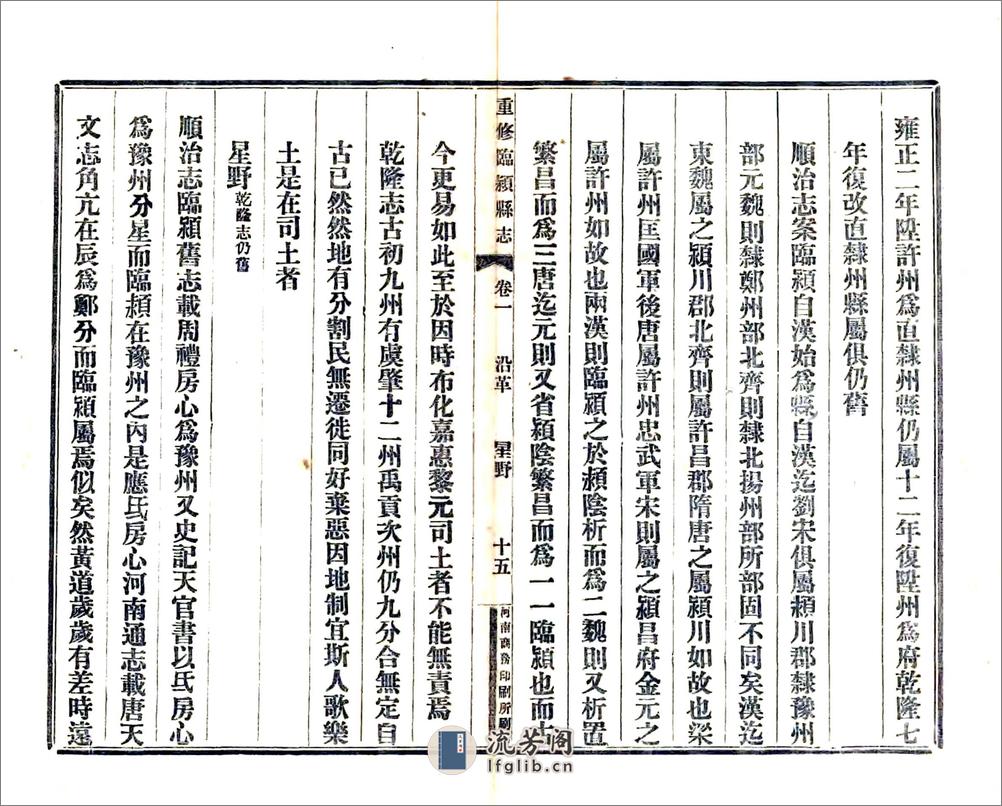 雍正二年陞許州爲直隸州縣仍屬十二年復陞州爲府乾隆七
年復改直隸州縣屬俱仍舊
順治志案臨潁自漢始爲縣自漢迄劉宋俱屬潁川郡隸豫州
部元魏則隸鄭州部北齊則隸北揚州部所部固不同矣漢迄
東魏屬之潁川郡北齊則屬許昌郡隋唐之屬潁川如故也梁
屬許州匡國軍後唐屬許州忠武軍宋則屬之潁昌府金元之
屬許州如故也兩漢則臨潁之於潁陰析而爲二魏則又析置
繁昌而爲三唐迄元則又省潁陰繁昌而爲一一臨潁也而古
重修臨潁縣志 卷一 沿革 星野 十五 河南商務印刷所刷
今更易如此至於因時布化嘉惠黎元司土者不能無責焉
乾隆志古初九州有虞肇十二州禹貢次州仍九分合無定自
古已然然地有分割民無遷徙同好棄惡因地制宜斯人歌樂
土是在司土者
星野乾隆志仍舊
順治志臨潁舊志載周禮房心爲豫州又史記天官書以氐房心
爲豫州分星而臨潁在豫州之內是應氐房心河南通志載唐天
文志角亢在辰爲鄭分而臨潁屬焉似矣然黃道歲歲有差時遠
流芳閣
lfglib.cn